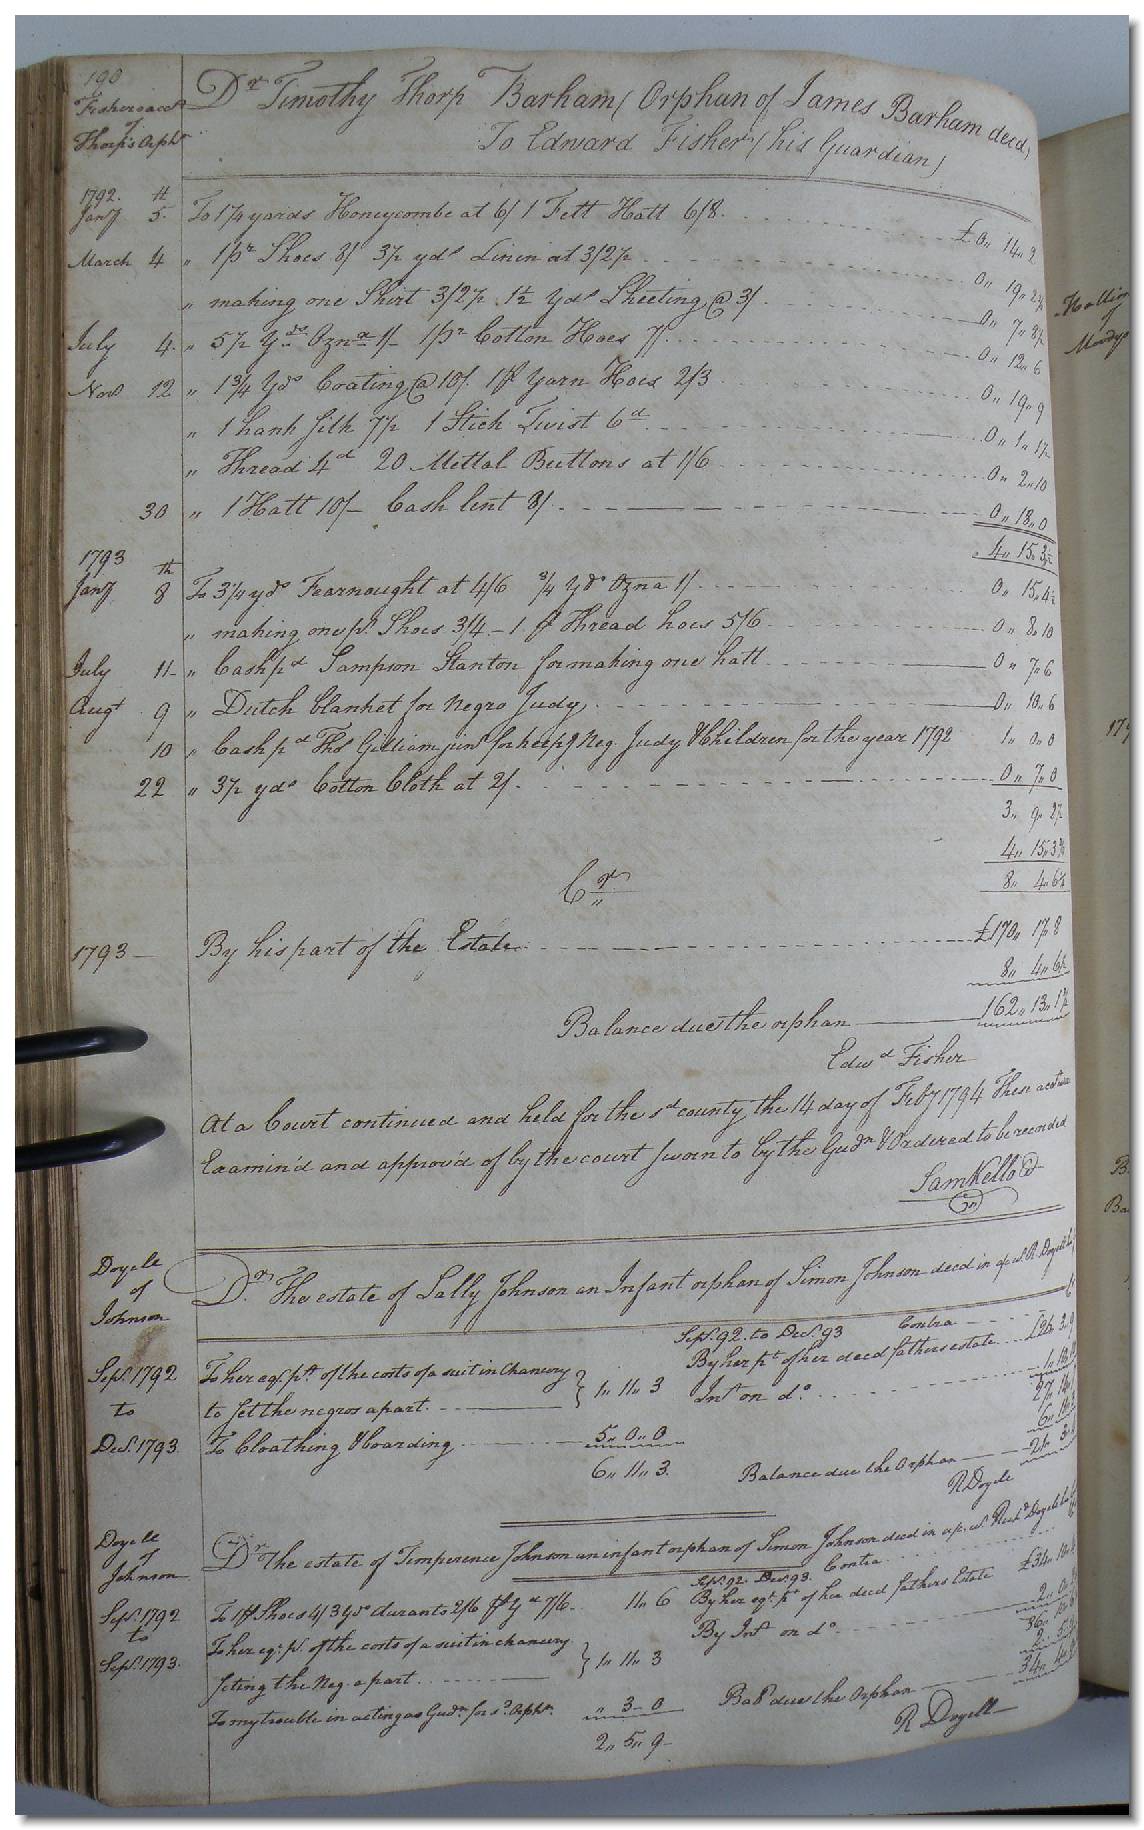 190
Fishers acct
of
Thorp's Orpht
Dr Timothy Thorp Barham (Orphan of James Barham decd)
To Edward Fisher (his Guardian)
1792. th
Jany 5. To 1¼ yards Honeycombe at 6/ 1 Fett Hatt 6/8 £0,, 14,, 2
March 4 " 1 pr Shoes 8/ 3½ yds Linin at 3/2½ 0,, 19,, 2¾
" making one Shirt 3/2½ 1½ yds Sheeting @ 3/ 0,, 7,, 8½
July 4. " 5½ Yds Ozna 1/- 1 pr Cotton Hoes 7/ 0,, 12,, 6
Novr 12 " 1¾ Yds Coating @ 10/. 1 p Yarn Hoes 2/3 0,, 19,, 9
" 1 hank silk 7½ 1 Stick Twist 6d 0,, 1,, 1½
" Thread 4d 20 Mettal Buttons at 1/6 0,, 2,, 10
30 " 1 Hatt 10/- Cash lent 8/ 0,, 18,, 0
4,, 15,, 3¾
1793 th
Jany 8 To 3¼ yds Fearnought at 4/6 ¾ Yds Ozna 1/ 0,, 15,, 4½
" making one pr. Shoes 3/4 - 1 p Thread hoes 5/6 0,, 8,, 10
July 11- " Cash pd Sampson Stanton for making one hatt 0,, 7,, 6
Augt 9 " Dutch blanket for Negro Judy 0,, 10,, 6
10 " Cash pd Ths Gilliam junr for keepg Neg. Judy & Children for the year 1792 1,, 0,, 0
22 " 3½ yds Cotton Cloth at 2/ 0,, 7,, 0
3,, 9,, 2½
4,, 15,, 3¾
8,, 4,, 6¼
Cr
1793 - By his part of the Estate £170,, 17,, 8
8,, 4,, 6½
Balance due the orphan 162,, 13,, 1½
Edwd Fisher
At a Court continued and held for the sd county the 14 day of Feby 1794 These acct was
Examin'd and approv'd of by the court sworn to by the Gudn & Ordered to be recorded
Sam Kello
Doyell
of
Johnson
Dr. The estate of Sally Johnson an Infant orphan of Simon Johnson decd in R. Doyell
Sept. 92. to Decr. 93 Contra
Sept. 1792 To her eql. pt. of the costs of a suit in Chancery By her pt of her decd fathers estate
to to set the negros apart. 1,, 11,, 3 Int on do
Decr. 1793 To Cloathing & boarding 5,, 0,, 0
6,, 11,, 3. Balance due the Orphan
R Doyele
Doyell
of
Johnson
Dr The estate of Temperence Johnson an infant orphan of Simon Johnson decd in Doyell
Sept. 92. Decr. 93. Contra
Sept. 1792 To 1 p Shoes 4/ 3 yds durants 2/6 7/6. 11,, 6 By her eql pt of her decd fathers Estate
to To her eql pt. of the costs of a suit in chancery By Int on do
Sept. 1793. seting the Neg. apart 1,, 11,, 3
To my trouble in acting as Gudn for sd. Orpht. " 3 - 0 Bale due the Orphan
2,, 5,, 9- R Doyell